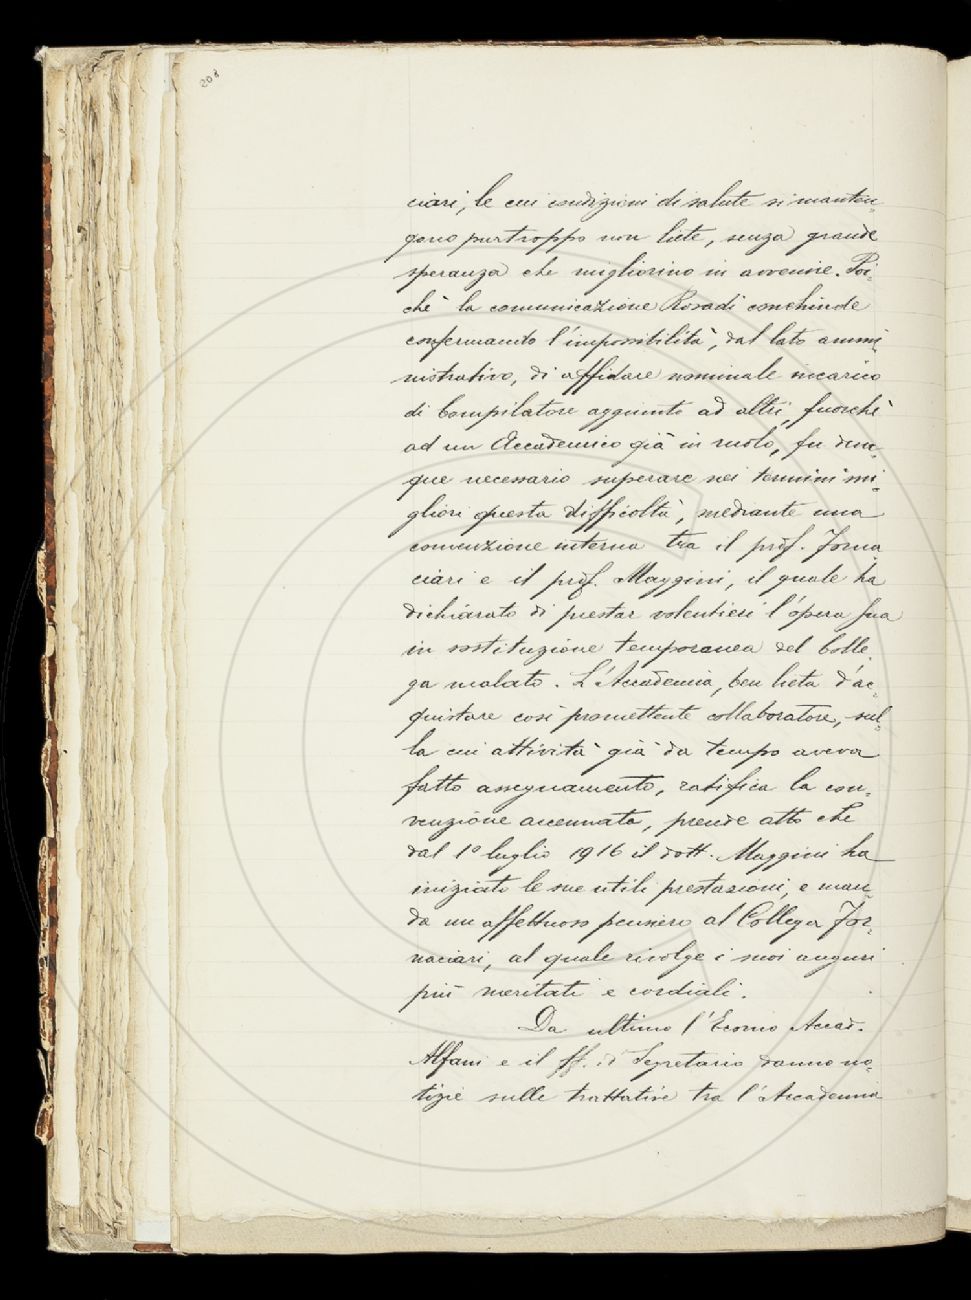 208
ciari, le cui condizioni di salute si manten=
gono purtroppo non liete, senza grande
speranza che migliorino in avvenire. Poi=
chè la comunicazione Rosadi conchiude
confermando l'impossibilità, dal lato ammi
nistrativo, di affidare nominale incarico
di Compilatore aggiunto ad altri, fuorchè
ad un Accademico già in ruolo, fu dun=
que necessario superare nei termini mi=
gliori questa difficoltà, mediante una
convenzione interna tra il prof. Forna
ciari e il prof. Maggini, il quale ha
dichiarato di prestar volentieri l'opera sua
in sostituzione temporanea del Colle=
ga malato. L'Accademia, ben lieta d'ac=
quistare così promettente collaboratore, sul=
la cui attività già da tempo aveva
fatto assegnamento, ratifica la con=
venzione accennata, prende atto che
dal 1º luglio 1916 il dott. Maggini ha
iniziato le sue utili prestazioni, e man
da un affettuoso pensiero al Collega For=
naciari, al quale rivolge i suoi auguri
più meritati e cordiali.
Da ultimo l'Economo Accad.
Alfani e il ff. di Segretario danno no=
tizie sulle trattative tra l'Accademia